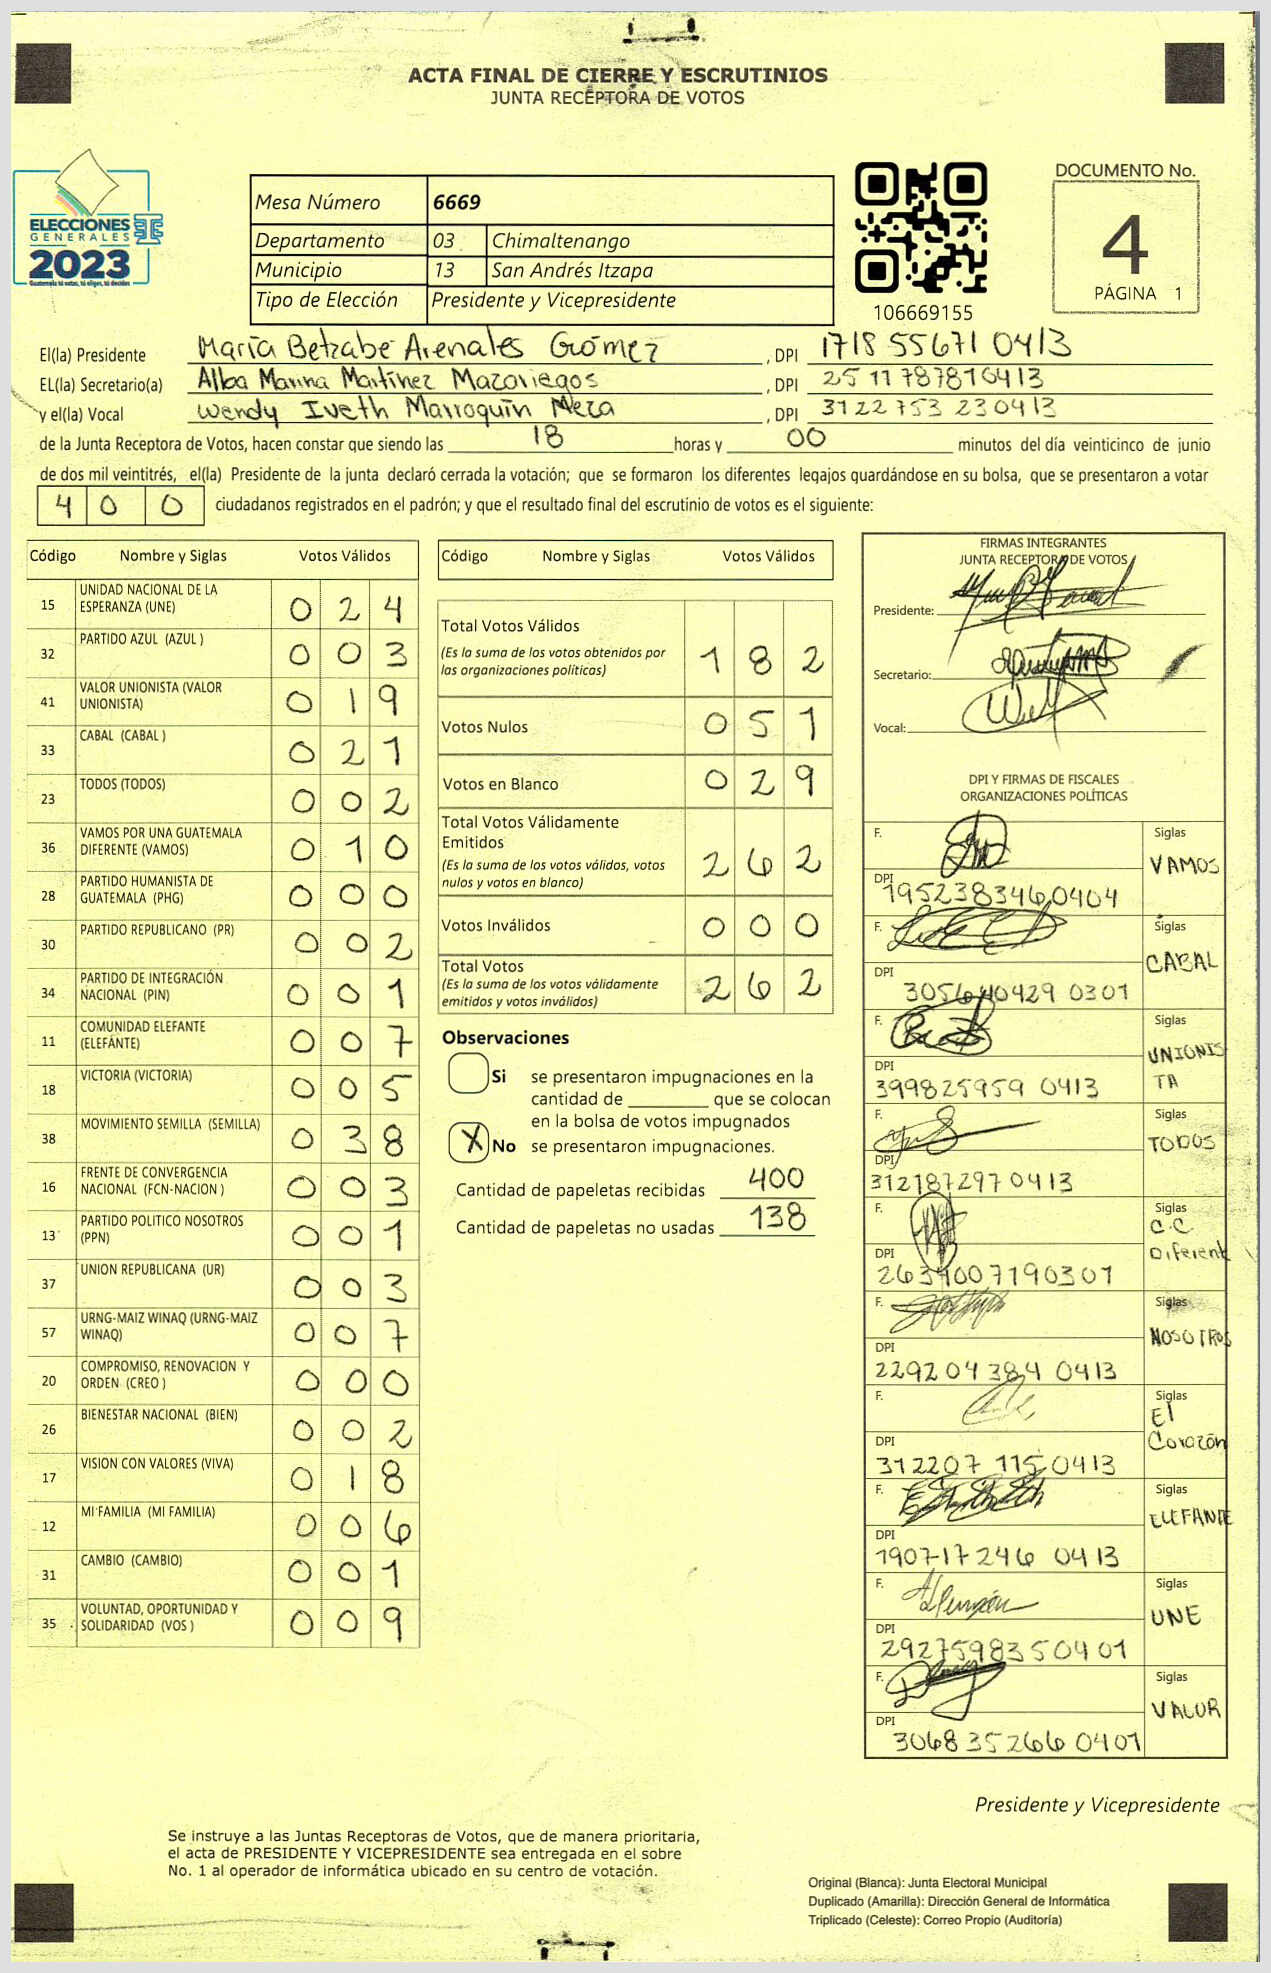 ACTA FINAL DE CIERRE Y ESCRUTINIOS
JUNTA RECEPTORA DE VOTOS
ELECCIONES
GENERALES
2023
Guatemala tú votas, tú eliges, tú decides
Mesa Número 6669
Departamento 03 Chimaltenango
Municipio 13 San Andrés Itzapa
Tipo de Elección Presidente y Vicepresidente
106669155
DOCUMENTO No.
4
PÁGINA 1
El(la) Presidente María Betzabe Arenales Gómez , DPI 1718 55671 0413
EL(la) Secretario(a) Alba Marina Martínez Mazariegos , DPI 25 11 787810413
y el(la) Vocal Wendy Iveth Marroquín Meza , DPI 3122 753 230413
de la Junta Receptora de Votos, hacen constar que siendo las 18 horas y 00 minutos del día veinticinco de junio
de dos mil veintitrés, el(la) Presidente de la junta declaró cerrada la votación; que se formaron los diferentes legajos guardándose en su bolsa, que se presentaron a votar
4 0 0 ciudadanos registrados en el padrón; y que el resultado final del escrutinio de votos es el siguiente:
Código Nombre y Siglas Votos Válidos
15 UNIDAD NACIONAL DE LA ESPERANZA (UNE) 0 2 4
32 PARTIDO AZUL (AZUL ) 0 0 3
41 VALOR UNIONISTA (VALOR UNIONISTA) 0 1 9
33 CABAL (CABAL ) 0 2 1
23 TODOS (TODOS) 0 0 2
36 VAMOS POR UNA GUATEMALA DIFERENTE (VAMOS) 0 1 0
28 PARTIDO HUMANISTA DE GUATEMALA (PHG) 0 0 0
30 PARTIDO REPUBLICANO (PR) 0 0 2
34 PARTIDO DE INTEGRACIÓN NACIONAL (PIN) 0 0 1
11 COMUNIDAD ELEFANTE (ELEFANTE) 0 0 7
18 VICTORIA (VICTORIA) 0 0 5
38 MOVIMIENTO SEMILLA (SEMILLA) 0 3 8
16 FRENTE DE CONVERGENCIA NACIONAL (FCN-NACION ) 0 0 3
13 PARTIDO POLITICO NOSOTROS (PPN) 0 0 1
37 UNION REPUBLICANA (UR) 0 0 3
57 URNG-MAIZ WINAQ (URNG-MAIZ WINAQ) 0 0 7
20 COMPROMISO, RENOVACION Y ORDEN (CREO ) 0 0 0
26 BIENESTAR NACIONAL (BIEN) 0 0 2
17 VISION CON VALORES (VIVA) 0 1 8
12 MI FAMILIA (MI FAMILIA) 0 0 6
31 CAMBIO (CAMBIO) 0 0 1
35 VOLUNTAD, OPORTUNIDAD Y SOLIDARIDAD (VOS ) 0 0 9
Código Nombre y Siglas Votos Válidos
Total Votos Válidos
(Es la suma de los votos obtenidos por las organizaciones políticas) 1 8 2
Votos Nulos 0 5 1
Votos en Blanco 0 2 9
Total Votos Válidamente Emitidos
(Es la suma de los votos válidos, votos nulos y votos en blanco) 2 6 2
Votos Inválidos 0 0 0
Total Votos
(Es la suma de los votos válidamente emitidos y votos inválidos) 2 6 2
Observaciones
Si se presentaron impugnaciones en la
cantidad de ________ que se colocan
en la bolsa de votos impugnados
X No se presentaron impugnaciones.
Cantidad de papeletas recibidas 400
Cantidad de papeletas no usadas 138
FIRMAS INTEGRANTES
JUNTA RECEPTORA DE VOTOS
Presidente:
Secretario:
Vocal:
DPI Y FIRMAS DE FISCALES
ORGANIZACIONES POLÍTICAS
F. Siglas VAMOS
DPI 1952383460404
F. Siglas CABAL
DPI 305640429 0301
F. Siglas UNIONISTA
DPI 399825959 0413
F. Siglas TODOS
DPI 312187297 0413
F. Siglas C.C Diferent
DPI 2639007190301
F. Siglas NOSOTROS
DPI 2292 04 384 0413
F. Siglas El Corazón
DPI 312207 115 0413
F. Siglas ELEFANTE
DPI 1907 17 246 0413
F. Siglas UNE
DPI 2927598350401
F. Siglas VALOR
DPI 3068 35266 0401
Presidente y Vicepresidente
Se instruye a las Juntas Receptoras de Votos, que de manera prioritaria,
el acta de PRESIDENTE Y VICEPRESIDENTE sea entregada en el sobre
No. 1 al operador de informática ubicado en su centro de votación.
Original (Blanca): Junta Electoral Municipal
Duplicado (Amarilla): Dirección General de Informática
Triplicado (Celeste): Correo Propio (Auditoría)